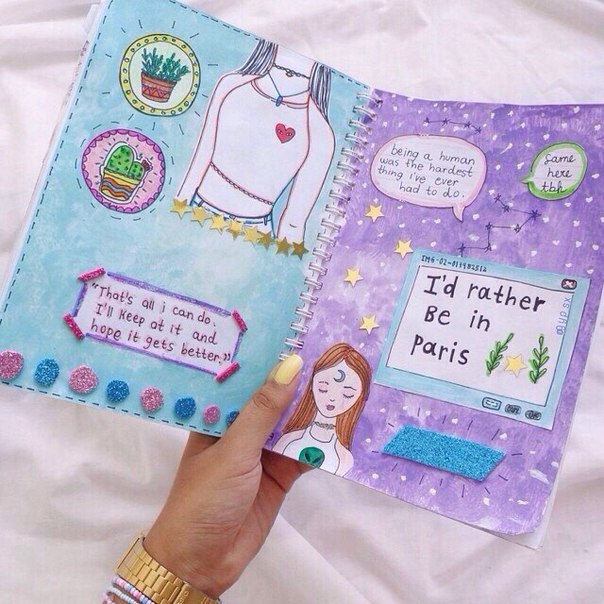 "That's all i can do.
I'll keep at it and
hope it gets better."
being a human
was the hardest
thing i've ever
had to do.
same
here
tbh
IMG-02-011982512
I'd rather
Be in
Paris